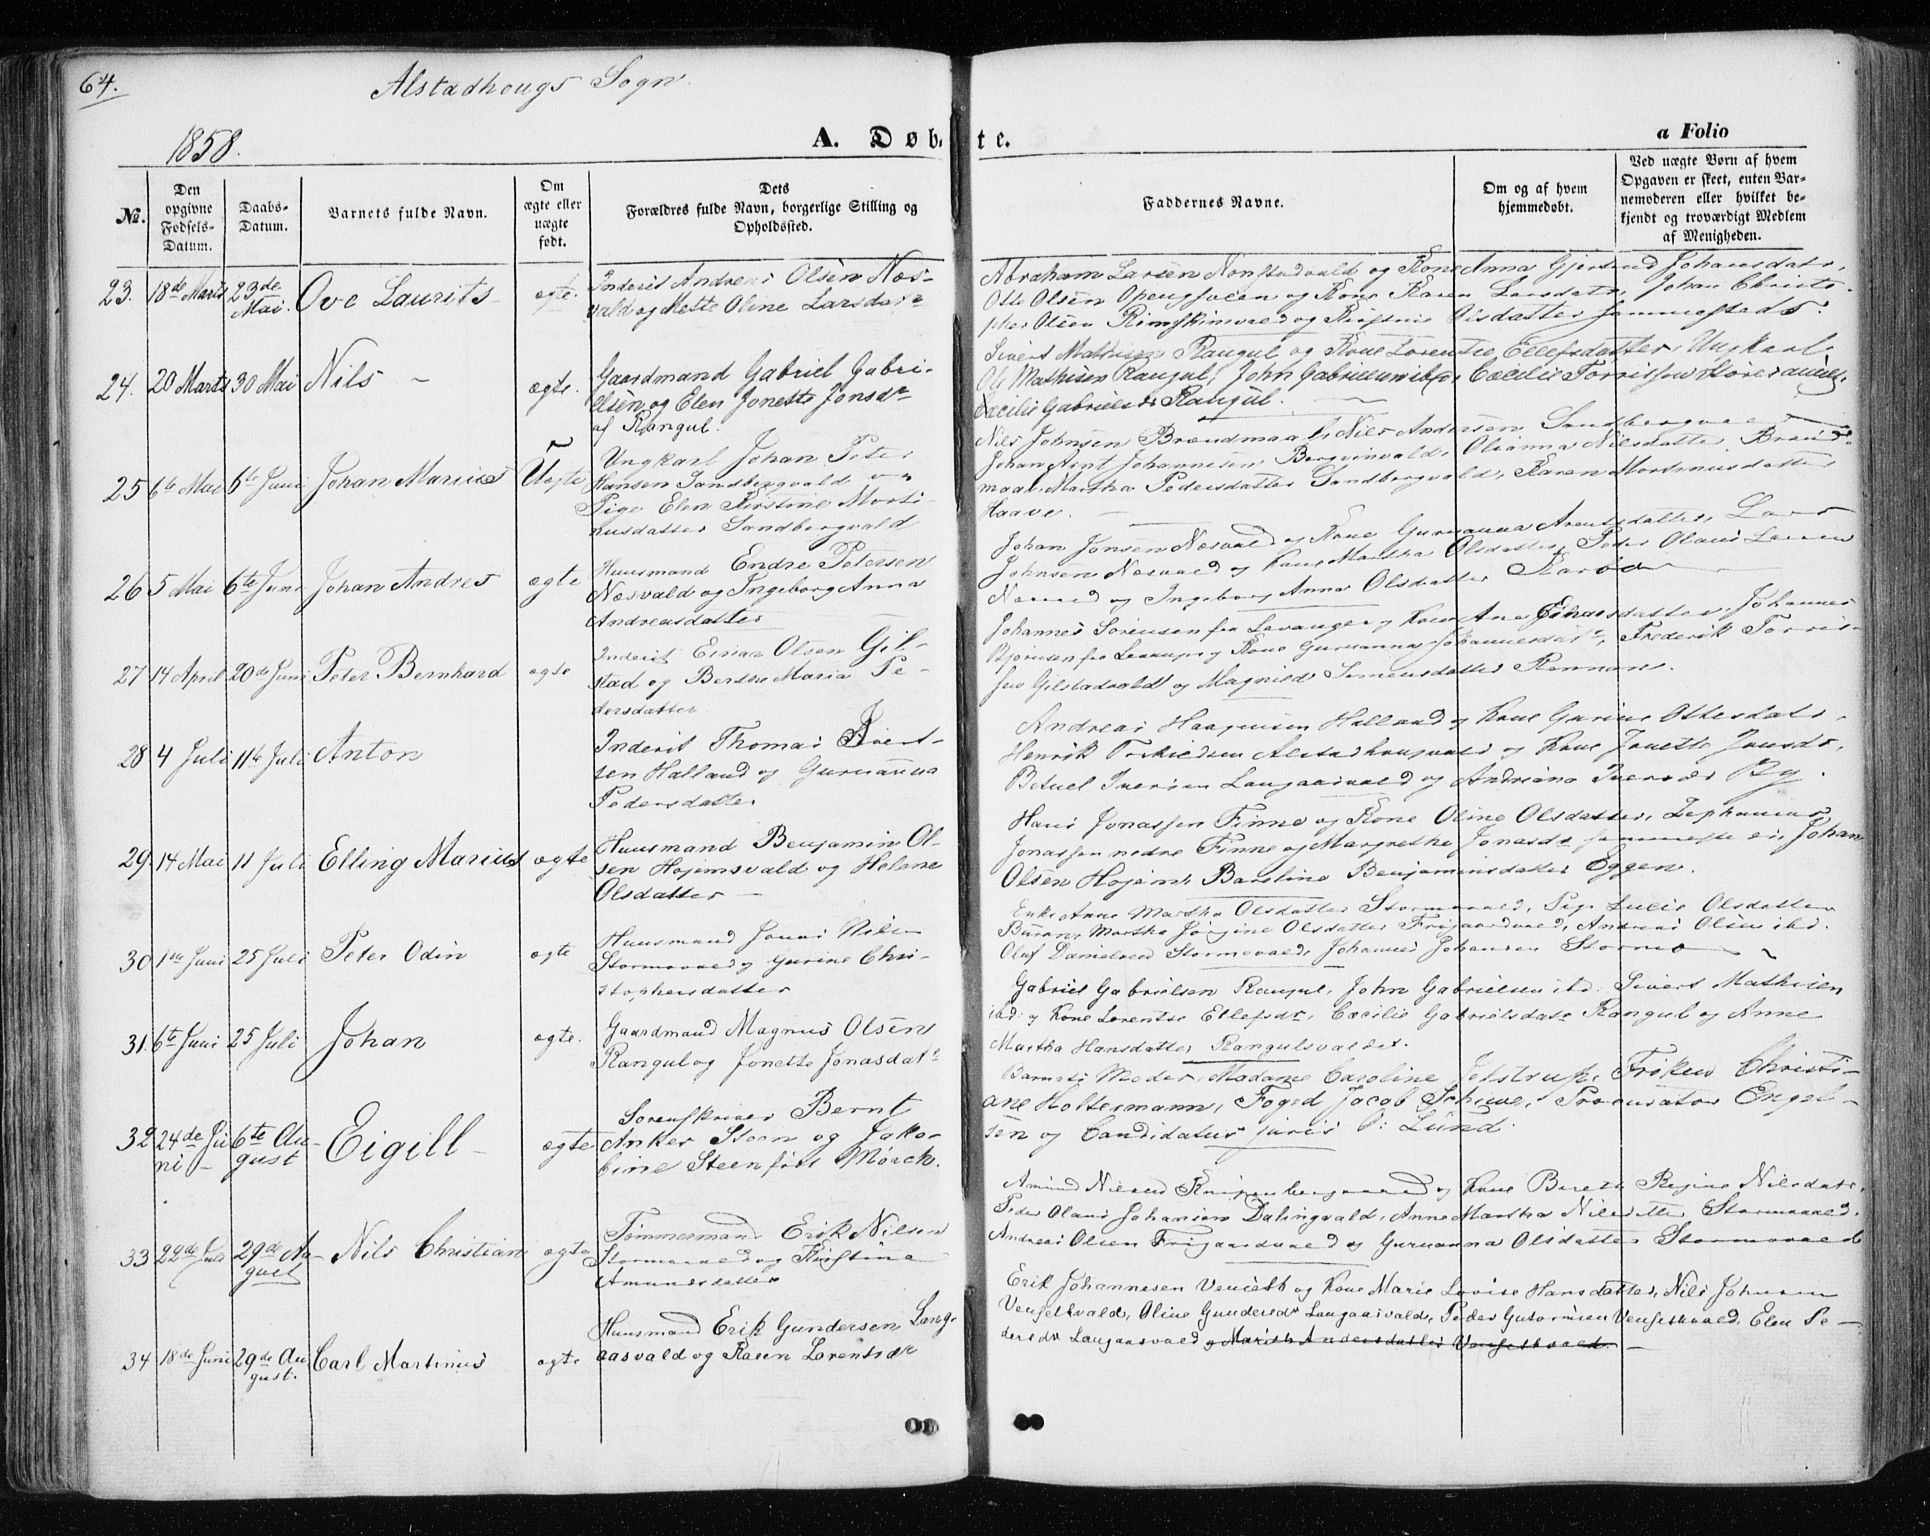 64.
Alstadhougs Sogn
1858.
A. Døbte.
a Folio
No.
Den opgivne Fødsels-Datum.
Daabs-Datum.
Barnets fulde Navn.
Om ægte eller uægte født.
Dets Forældres fulde Navn, borgerlige Stilling og Opholdssted.
Faddernes Navne.
Om og af hvem hjemmedøbt.
Ved uægte Børn af hvem Opgaven er skeet, enten Barnemoderen eller hvilket bekjendt og troværdigt Medlem af Menigheden.
23. 18de Marts 23de Mai. Ove Laurits ægte.
Inderst Andreas Olsen Næs-
vald og Mette Oline Larsdatr
Abraham Larsen Nonstadvald og Kone Anna Gjertrud Johansdatr,
Otte Olsen og Kone Karen Larsdatr, Johan Christo-
pher Olsen og Kirstine Olsdatter sammesteds.
24. 20 Marts 30 Mai Nils - ægte.
Gaardmand Gabriel Gabri-
elsen og Elen Jonette Jonsdr
af Rangul.
Sivert Mathisen Rangul og Kone Lorentse Ellefsdatter, Ungkarl
Ole Mathisen Rangul, John Gabrielsen ibd, Cecilie
Cecilie Gabrielsdr Rangul.
25 6te Mai 6te Juni Johan Marius Uægte
Ungkarl Johan Peter
Hansen Sandbergvald og
Pige Elen Kirstine Morti-
nusdatter Sandbergvald
Nils Johnsen Brændmaal, Nils Andersen
Johan Arnt Johannesen Bergvinvald, Olianna Nilsdatter Brænd-
maal, Martha Pedersdatter Sandbergvald, Karen Mortinusdatter
Haave.
26 5 Mai 6te Juni Johan Andres ægte
Huusmand Endre Petersen
Næsvald og Ingeborg Anna
Andreasdatter
Johan Jonsen Næsvald og Kone Guruanna Arentsdatter, Lars
Johnsen Næsvald og Kone Martha Olsdatter, Peder Olaus Larsen
Næsvald og Ingeborg Anna Olsdatter
27 14 April 20de Juni Peter Bernhard ægte
Inderst Einar Olsen Gil-
stad og Berthe Maria Pe-
dersdatter
Johannes Sørensen fra Levanger og Kone Ane Einarsdatter, Johannes
Bjørnsen fra og Kone Guruanna Johannesdatr, Frederik Torris-
sen Gilstadvald og Magnild Simensdatter
28 4 Juli 11te Juli Anton
Inderst Thomas Sivert-
sen Halland og Guruanna
Pedersdatter
Andreas Haagensen Halland og Kone Gurine Ottesdatr,
Henrik Alstadhougvald og Kone Jonette Jonsdr,
Betuel Iversen Langaasvald og Andriana Iversdr By.
29 14 Mai 11 Juli Elling Marius ægte
Huusmand Benjamin Ol-
sen Højemsvald og Helene
Olsdatter -
Hans Jonassen Finne og Kone Oline Olsdatter, Zephanias
Jonassen nedre Finne og Margrethe Jonasdr sammesteds, Johan
Olsen Højem, Barsline Benjaminsdatter Eggen.
30 1ste Juni 25 Juli Peter Odin ægte
Huusmand Jonas Nilsen
Stormovald og Gurine Chri-
stophersdatter
Enke Anne Martha Olsdatter Stormovald, Pige Lucie Olsdatter
Buran, Martha Jørgine Olsdatter Frigaardvald, Andreas Olsen ibd.
Oluf Danielsen Stormovald, Johannes Johansen Stormo
31. 6te Juni 25 Juli Johan ægte.
Gaardmand Magnus Olsen
Rangul og Jonette Jonasdatr
Gabriel Gabrielsen Rangul, John Gabrielsen ibd. Sivert Mathisen
ibd. og Kone Lorentse Ellefsdr, Cæcilie Gabrielsdatr Rangul og Anne
Martha Hansdatter Rangulsvaldet.
32 24de Juni - 6te August Eigill - ægte
Sorenskriver Bernt
Anker Steen og Jako-
bine Steen født Mørck.
Barnets Moder, Madame Caroline Jelstrup, Frøken Christi-
ane Holtermann, Foged Jacob Schive, Procurator Engel-
sen og Candidatus juris O: Lund.
33 22de Juli 29de August Nils Christian ægte
Tømmermand Erik Nilsen
Stormovald og Kirstine
Amundsdatter
Amund Nilsen og Kone Bereth Regine Nilsdatr,
Peder Olaus Johansen Dalingvald, Anne Martha Nilsdatter Stormovald,
Andreas Olsen Frigaardvald og Guruanna Olsdatter Stormovald
34 18de Juni 29de August. Carl Martinus ægte
Huusmand Erik Gundersen Lang-
aasvald og Karen Lorentsdr
Erik Johannesen Venseth og Kone Marie Lovise Hansdatter, Nils Johnsen
Vensethvald, Oline Gundersdr Langaasvald, Peder Gutormsen Vensethvald, Elen Pe-
dersdr Langaasvald og Marith Andersdatter Vensethvald. -